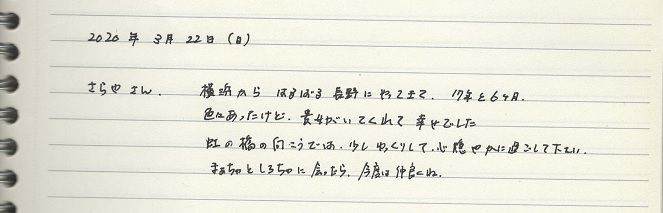 2020年 3月 22日 (日)
さらやさん. 横浜から はるばる 長野に やってきて. 17年と6ヶ月.
色々あったけど. 貴女がいてくれて 幸せでした
虹の橋の向こうでは. 少しゆっくりして. 心穏やかに過ごして下さい.
まぁちゃとしろちゃに会ったら. 今度は仲良くね.